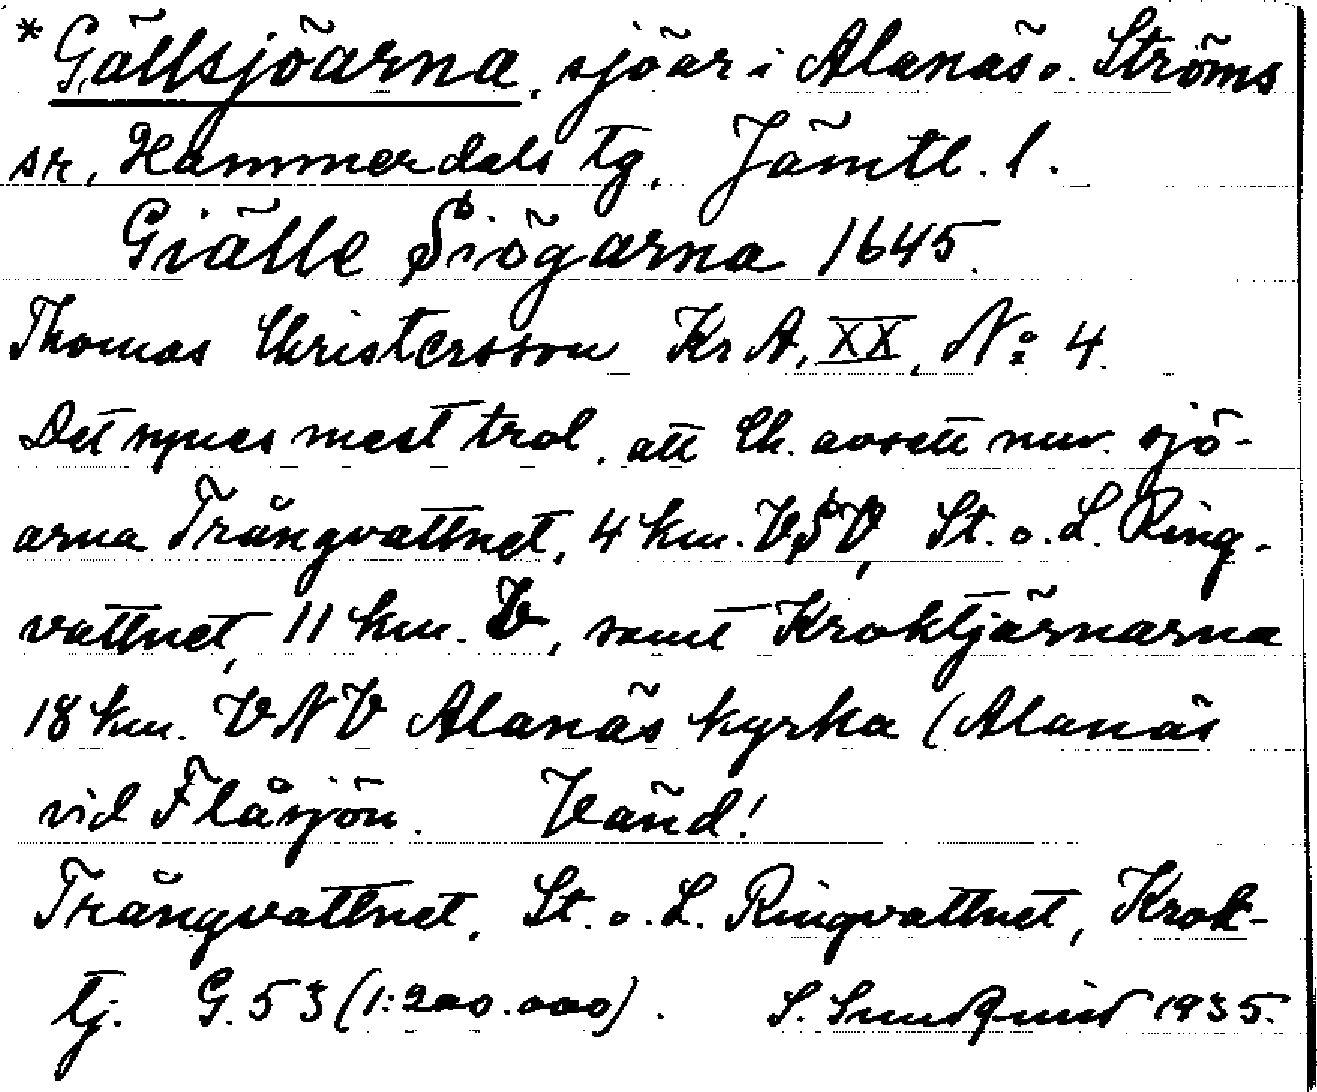 * Gällsjöarna, sjöar i Alanäs o. Ströms
sn, Hammerdals tg, Jämtl. l.
Giälle Siögarna 1645.
Thomas Christersson KrA, XX, No: 4.
Det synes mest trol. att Ch. avsett nuv. sjö-
arna Trångvattnet, 4 km. VSV, St. o. L. Ring-
vattnet, 11 km. V, samt Kroktjärnarna
18 km. VNV Alanäs kyrka (Alanäs
vid Flåsjön. Vänd!
Trångvattnet, St. o. L. Ringvattnet, Krok-
tj. G. 53 (1:200.000). S. Sundqvist 1935.